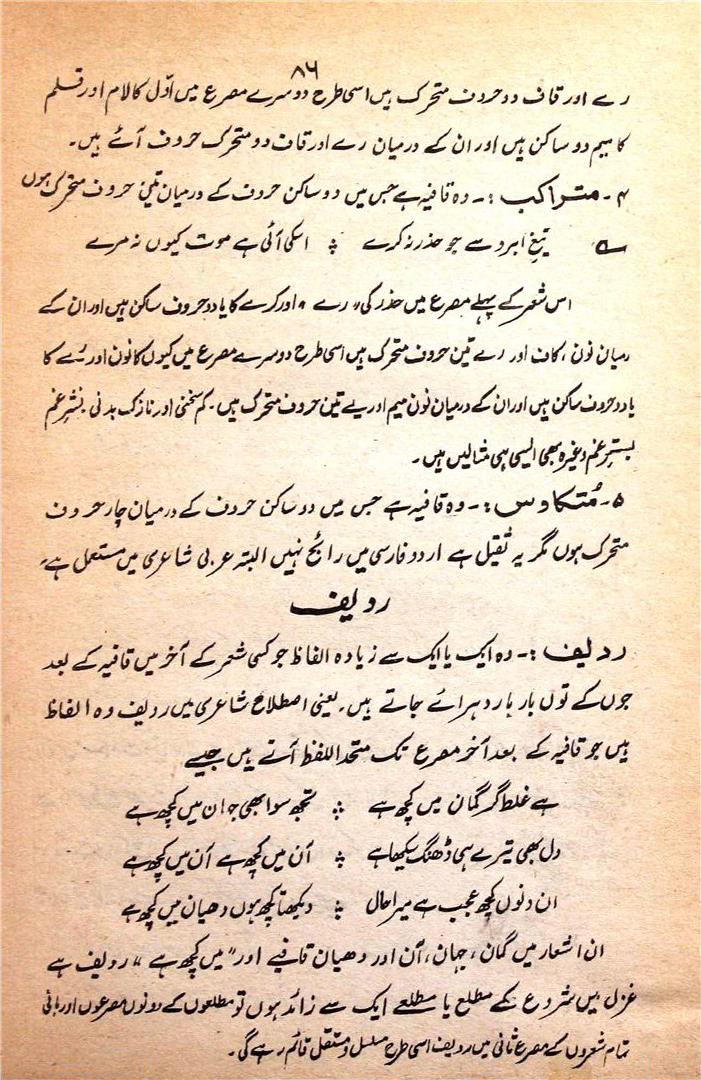 ۸۶
رے اور قاف دو حروف متحرک ہیں اسی طرح دوسرے مصرع میں اوّل کا لام اور قلم
کا میم دو ساکن ہیں اور ان کے درمیان رے اور قاف دو متحرک حروف آئے ہیں۔
۴۔ متراکب :۔ وہ قافیہ ہے جس میں دو ساکن حروف کے درمیان تین حروف متحرک ہوں
؎ تیغِ ابرو سے جو حذر نہ کرے ؞ اسکی آئی ہے موت کیوں نہ مرے
اس شعر کے پہلے مصرع میں حذر کی "رے" اور کرے کا یا دو حروف ساکن ہیں اور ان کے
رمیان نون، کاف اور رے تین حروف متحرک ہیں اسی طرح دوسرے مصرع میں کیوں کا نون اور مرے کا
یا دو حروف ساکن ہیں اور ان کے درمیان نون میم اور رے تین حروف متحرک ہیں۔ کم سخنی اور نازک بدنی نشترِ غم
بسترِ غم وغیرہ بھی ایسی ہی مثالیں ہیں۔
۵۔ مُتکاوس :۔ وہ قافیہ ہے جس میں دو ساکن حروف کے درمیان چار حروف
متحرک ہوں مگر یہ ثقیل ہے اردو فارسی میں رائج نہیں البتہ عربی شاعری میں مستعمل ہے۔
ردیف
ردیف :۔ وہ ایک یا ایک سے زیادہ الفاظ جو کسی شعر کے آخر میں قافیہ کے بعد
جوں کے توں بار بار دہرائے جاتے ہیں۔ یعنی اصطلاح شاعری میں ردیف وہ الفاظ
ہیں جو قافیہ کے بعد آخر مصرع تک متحد اللفظ آتے ہیں جیسے
ہے غلط گر گمان میں کچھ ہے ؞ تجھ سوا بھی جہان میں کچھ ہے
دل بھی تیرے ہی ڈھنگ سیکھا ہے ؞ آن میں کچھ ہے آن میں کچھ ہے
ان دنوں کچھ عجب ہے میرا حال ؞ دیکھتا کچھ ہوں دھیان میں کچھ ہے
ان اشعار میں گمان، جہان، آن اور دھیان قافیے اور "میں کچھ ہے" ردیف ہے
غزل میں شروع کے مطلع یا مطلعے ایک سے زائد ہوں تو مطلعوں کے دونوں مصرعوں اور باقی
تمام شعروں کے مصرع ثانی میں ردیف اسی طرح مسلسل و مستقل قائم رہے گی۔